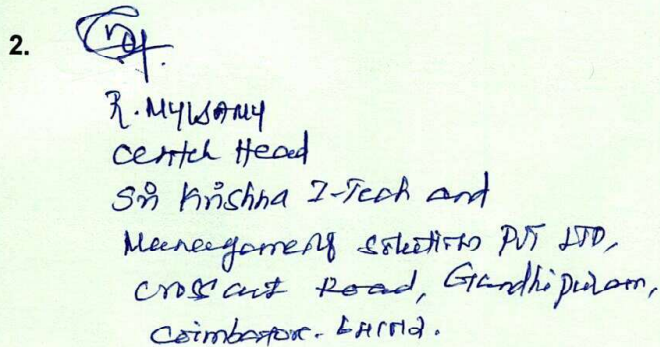 2.
R. MYLSAMY
Centre Head
Sri Krishna I-Tech and
Management Solutions PVT LTD,
Cross cut Road, Gandhipuram,
Coimbatore.